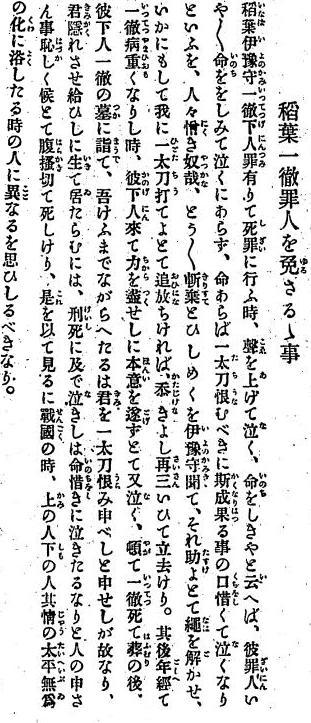 稲葉一徹罪人を免さるゝ事
稲葉伊豫守一徹下人罪有りて死罪に行ふ時、聲を上げて泣く、命をしきやと云へば、彼罪人い
や〳〵命ををしみて泣くにあらず、命あらば一太刀恨むべきに斯成果る事の口惜くて泣くなり
といふを、人々憎き奴哉、とう〳〵斬棄とひしめくを伊豫守聞て、それ助よとて繩を解かせ、
いかにもして我に一太刀打てよとて追放ちければ、忝きよし再三いひて立去けり。其後年經て
一徹病重くなりし時、彼下人來て力を盡せしに本意を遂ずとて又泣く、頓て一徹死て葬の後、
彼下人一徹の墓に詣て、吾けふまでながらへたるは君を一太刀恨み申べしと申せしが故なり、
君隱れさせ給ひしに生て居たらむには、刑死に及で泣きしは命惜きに泣きたるなりと人の申さ
ん事恥しく候とて腹搔切て死しけり、是を以て見るに戰國の時、上の人下の人其情の太平無爲
の化に浴したる時の人に異なるを思ひしるべきなり。